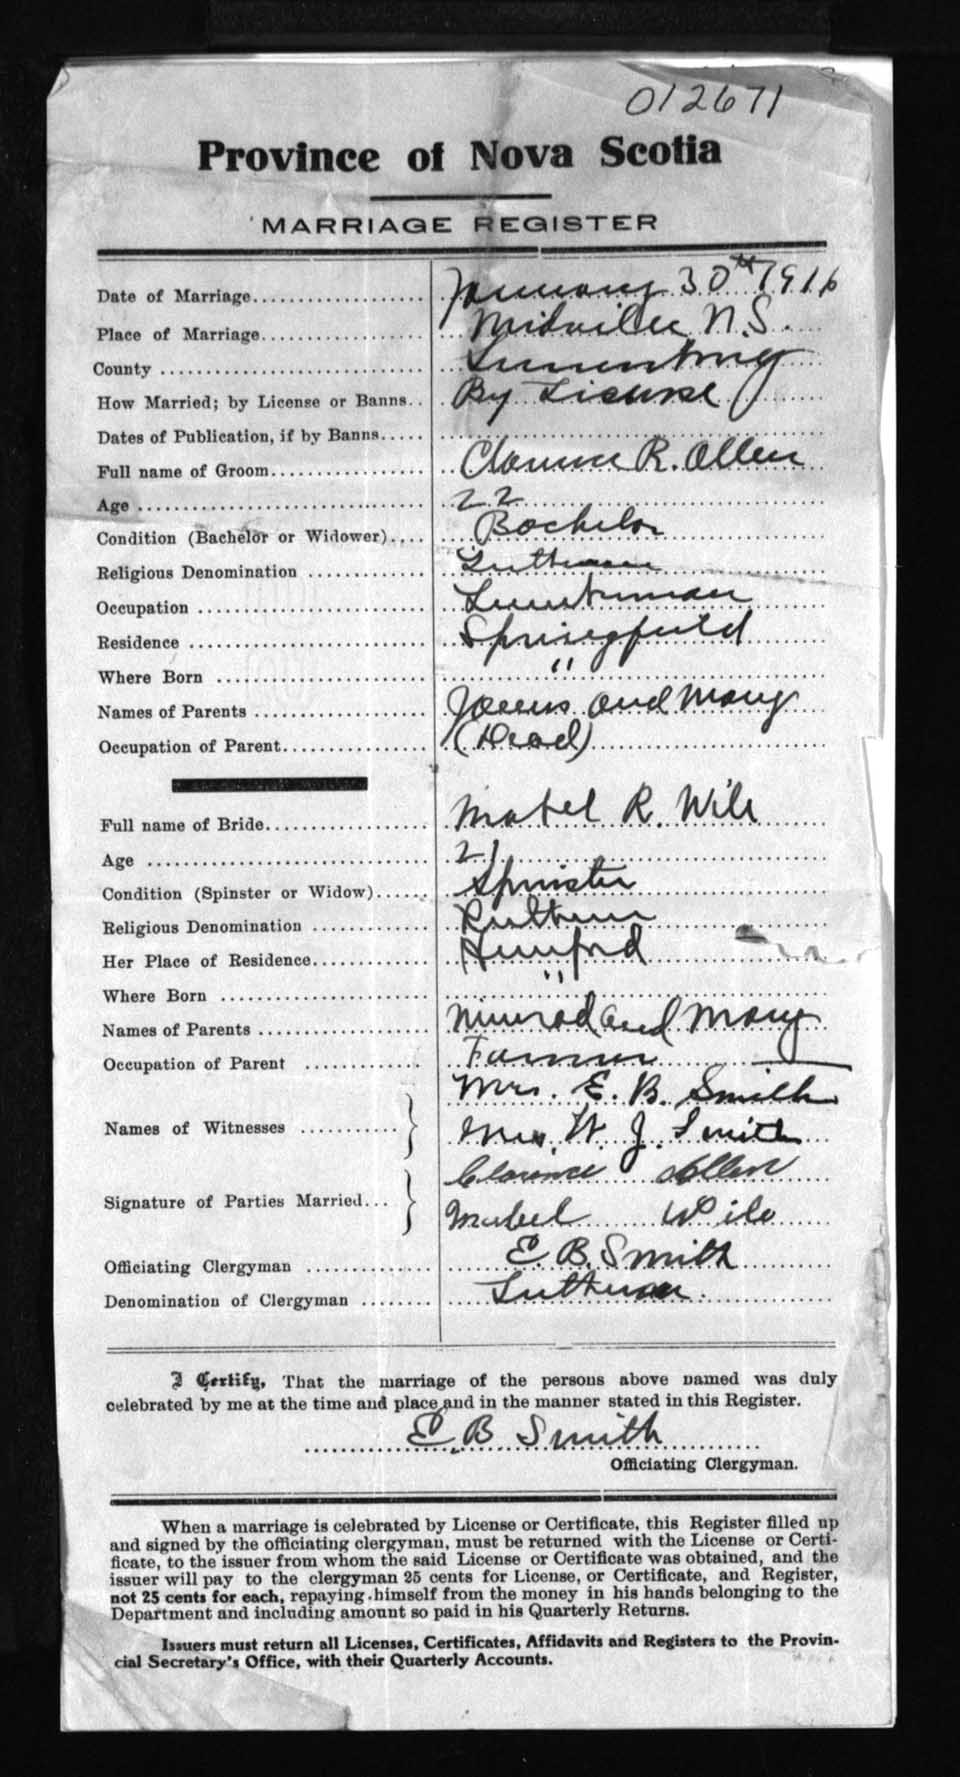 012671
Province of Nova Scotia
MARRIAGE REGISTER
Date of Marriage January 30th 1916
Place of Marriage Midville N.S.
County Lunenburg
How Married; by License or Banns By License
Dates of Publication, if by Banns
Full name of Groom Clarence R. Allen
Age 22
Condition (Bachelor or Widower) Bachelor
Religious Denomination Lutheran
Occupation Lumberman
Residence Springfield
Where Born "
Names of Parents James and Mary
Occupation of Parent (Dead)
Full name of Bride Mabel R. Wile
Age 21
Condition (Spinster or Widow) Spinster
Religious Denomination Lutheran
Her Place of Residence Hemford
Where Born "
Names of Parents Nimrod and Mary
Occupation of Parent Farmer
Mrs. E. B. Smith
Names of Witnesses
Mrs. W. J. Smith
Clarence Allen
Signature of Parties Married
Mabel Wile
Officiating Clergyman E. B. Smith
Denomination of Clergyman Lutheran.
I Certify, That the marriage of the persons above named was duly
celebrated by me at the time and place and in the manner stated in this Register.
E B Smith
Officiating Clergyman.
When a marriage is celebrated by License or Certificate, this Register filled up
and signed by the officiating clergyman, must be returned with the License or Certi-
ficate, to the issuer from whom the said License or Certificate was obtained, and the
issuer will pay to the clergyman 25 cents for License, or Certificate, and Register,
not 25 cents for each, repaying himself from the money in his hands belonging to the
Department and including amount so paid in his Quarterly Returns.
Issuers must return all Licenses, Certificates, Affidavits and Registers to the Provin-
cial Secretary's Office, with their Quarterly Accounts.